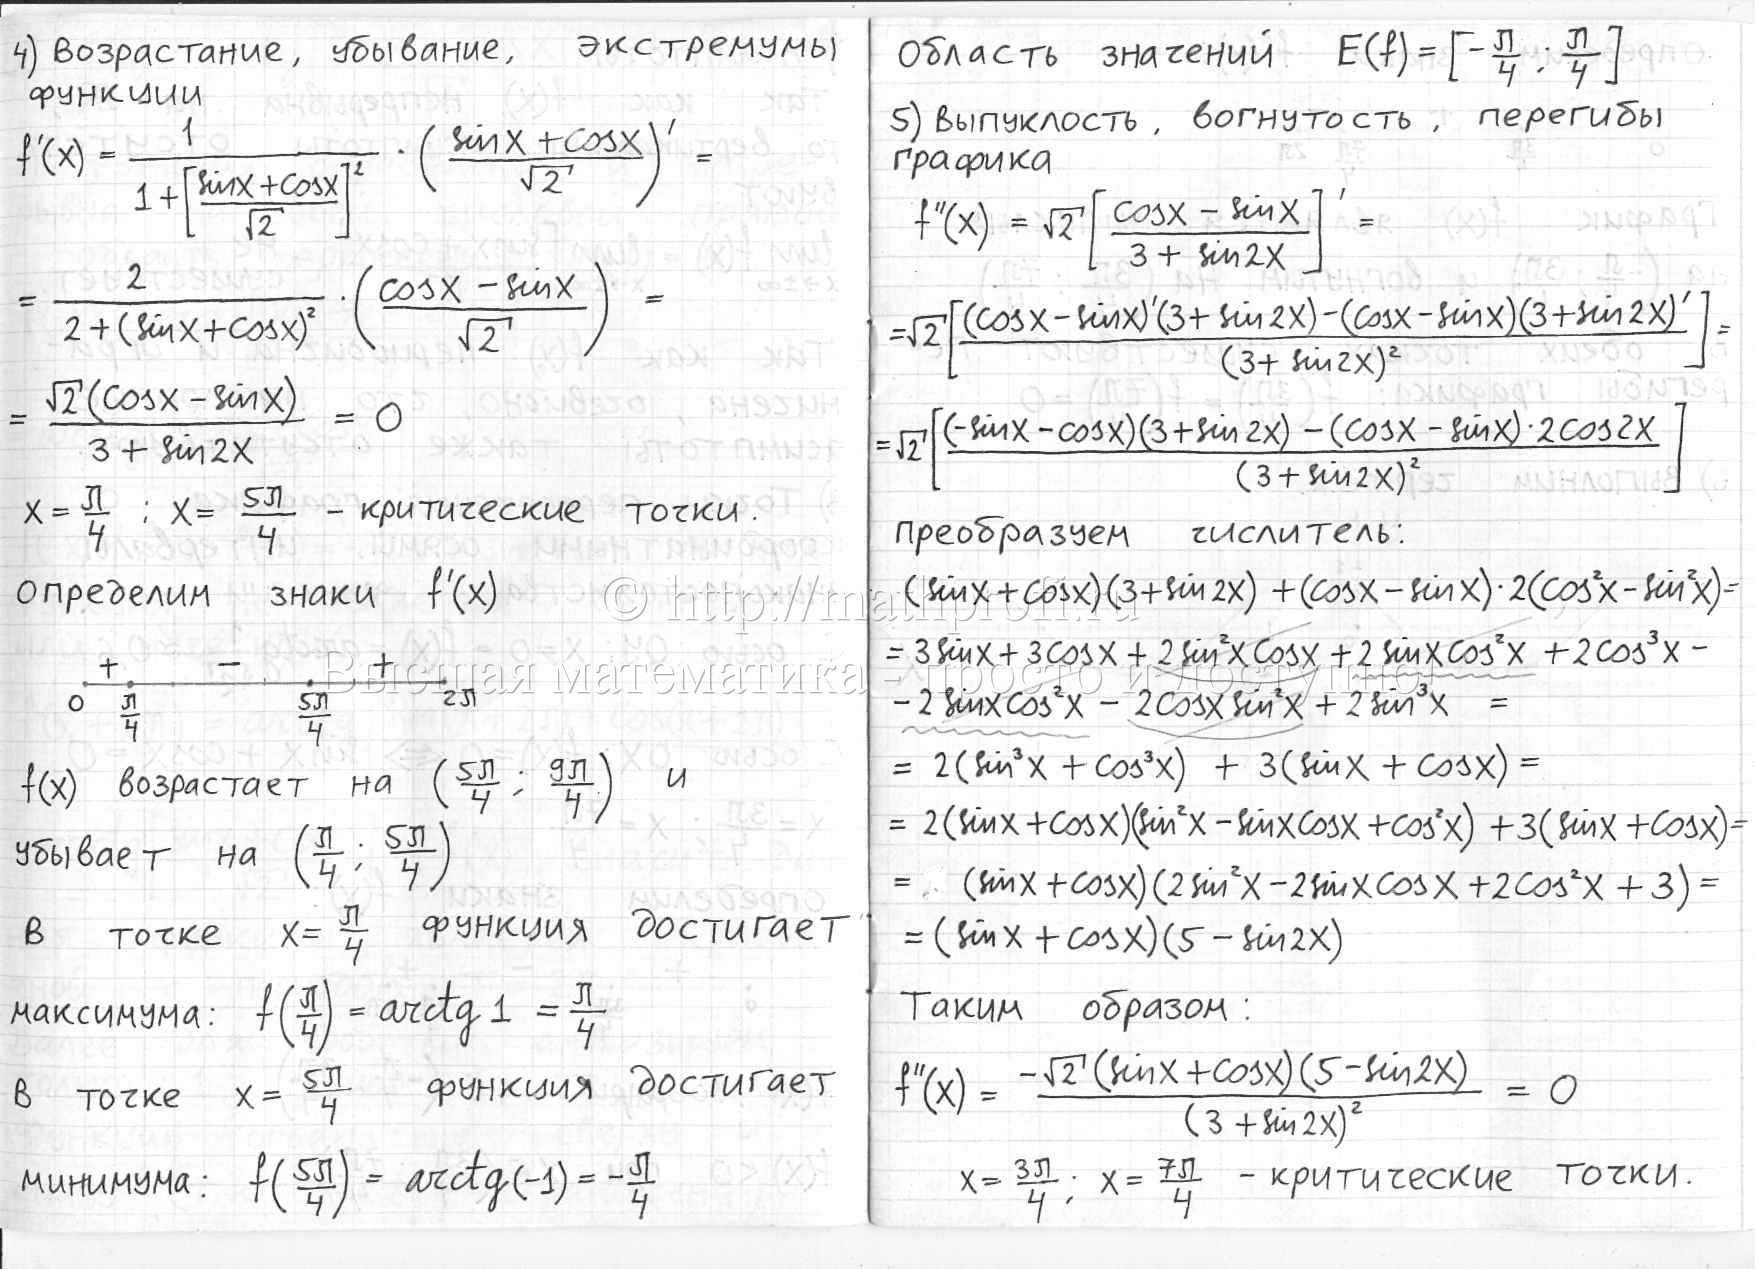 4) Возрастание, убывание, экстремумы
функции
f'(x) = 1/(1+[(sinx+cosx)/√2]²) · ((sinx+cosx)/√2)' =
= 2/(2+(sinx+cosx)²) · ((cosx−sinx)/√2) =
= √2(cosx−sinx)/(3+sin2x) = 0
x = π/4 ; x = 5π/4 – критические точки.
Определим знаки f'(x)
+ − +
0 π/4 5π/4 2π
f(x) возрастает на (5π/4 ; 9π/4) и
убывает на (π/4 ; 5π/4)
В точке x = π/4 функция достигает
максимума: f(π/4) = arctg 1 = π/4
В точке x = 5π/4 функция достигает
минимума: f(5π/4) = arctg(-1) = -π/4
Область значений E(f) = [-π/4 ; π/4]
5) Выпуклость, вогнутость, перегибы
графика
f''(x) = √2 [(cosx−sinx)/(3+sin2x)]' =
= √2 [((cosx−sinx)'(3+sin2x)−(cosx−sinx)(3+sin2x)')/(3+sin2x)²] =
= √2 [((-sinx−cosx)(3+sin2x)−(cosx−sinx)·2cos2x)/(3+sin2x)²]
преобразуем числитель:
(sinx+cosx)(3+sin2x)+(cosx−sinx)·2(cos²x−sin²x)=
= 3sinx+3cosx+2sin²xcosx+2sinxcos²x+2cos³x−
−2sinxcos²x−2cosxsin²x+2sin³x =
= 2(sin³x+cos³x)+3(sinx+cosx) =
= 2(sinx+cosx)(sin²x−sinxcosx+cos²x)+3(sinx+cosx)=
= (sinx+cosx)(2sin²x−2sinxcosx+2cos²x+3) =
= (sinx+cosx)(5−sin2x)
Таким образом:
f''(x) = -√2(sinx+cosx)(5−sin2x)/(3+sin2x)² = 0
x = 3π/4 ; x = 7π/4 – критические точки.
© http://mathprofi.ru
Высшая математика - просто и доступно!